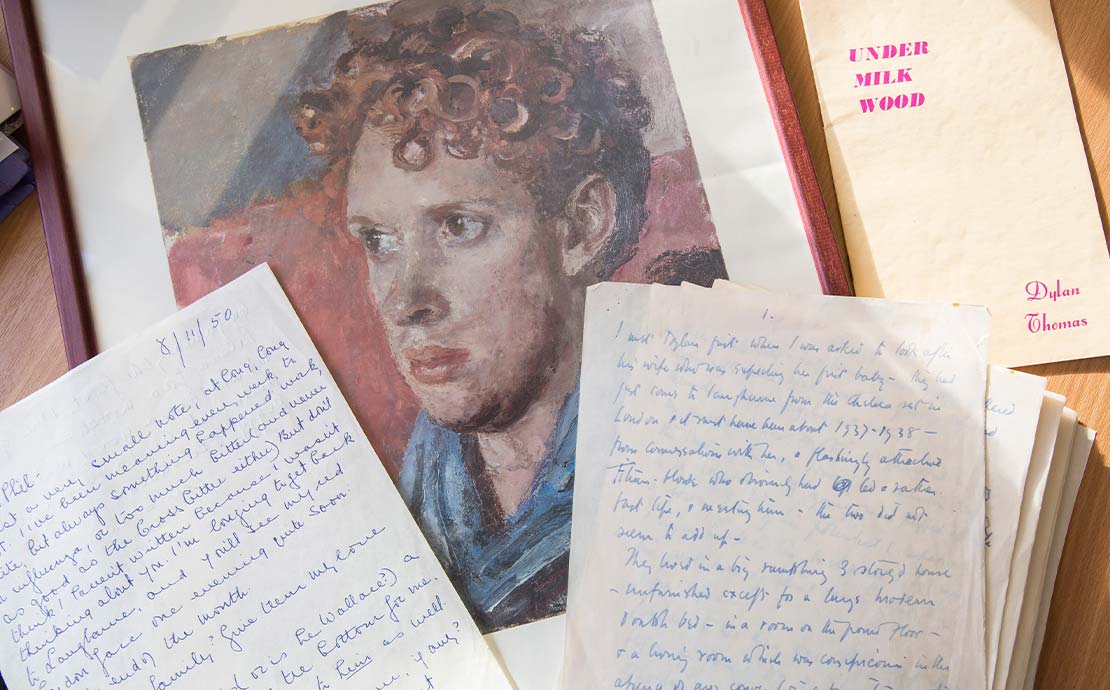 UNDER
MILK
WOOD
Dylan
Thomas
8/11/50
Phil-
a very small note, at long, long
I've been meaning every week, to
but always something happened: work,
or influenza, or too much Bitter (and never
as good as the Cross Bitter either). But don't
think I haven't written because I wasn't
thinking about you. I'm longing to get back
to Laugharne, and you'll see my red
face one evening quite soon.
end of the month.
family? Give them my love
or is he Wallace?) a
the Bottom for me.
to him as well.
any?
1.
I met Dylan first when I was asked to look after
his wife who was expecting her first baby - they had
just come to Laugharne from the Chelsea set in
London & it must have been about 1937-1938 -
from conversation with her, a flashingly attractive
Titian-blonde who obviously had led a rather
fast life, & meeting him - the two did not
seem to add up -
They lived in a big rambling 3 storey'd house
- unfurnished except for a large modern
double bed - in a room on the ground floor -
& a living room which was conspicuous in the
of any